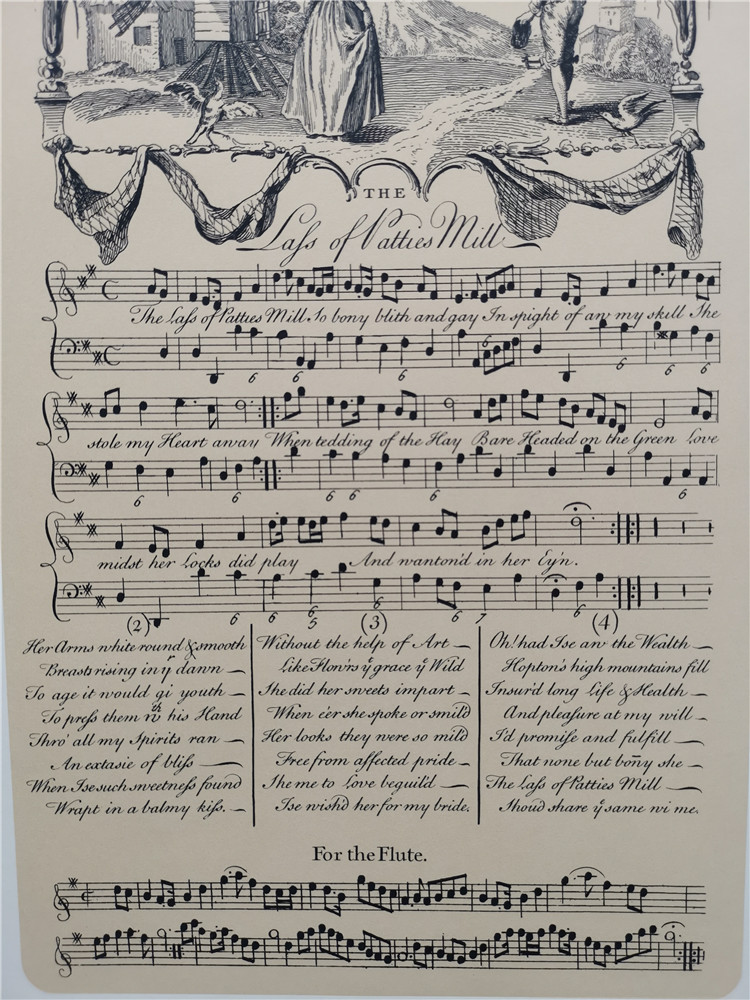 THE
Laſs of Patties Mill
The Laſs of Patties Mill So bony blith and gay In spight of aw my skill She
6 6 6 6 6 6
stole my Heart away When tedding of the Hay Bare Headed on the Green Love
6 6 6 6 6 6
midst her Locks did play And wanton'd in her Ey'n.
6 6 6 5 6 6 7
(2)
Her Arms white round & smooth
Breasts rising in yͤ dawn
To age it would gi youth
To preſs them wͭͪ his Hand
Thro' all my Spirits ran
An extasie of bliſs
When Ise such sweetneſs found
Wrapt in a balmy kiſs.
(3)
Without the help of Art
Like Flow'rs yͭ grace yͤ Wild
She did her sweets impart
When e'er she spoke or smil'd
Her looks they were so mild
Free from affected pride
She me to Love beguil'd
Ise wish'd her for my bride.
(4)
Oh! had Ise aw the Wealth
Hopton's high mountains fill
Insur'd long Life & Health
And pleaſure at my will
I'd promiſe and fulfill
That none but boñy she
The Laſs of Patties Mill
Shou'd share yͤ same wi me.
For the Flute.